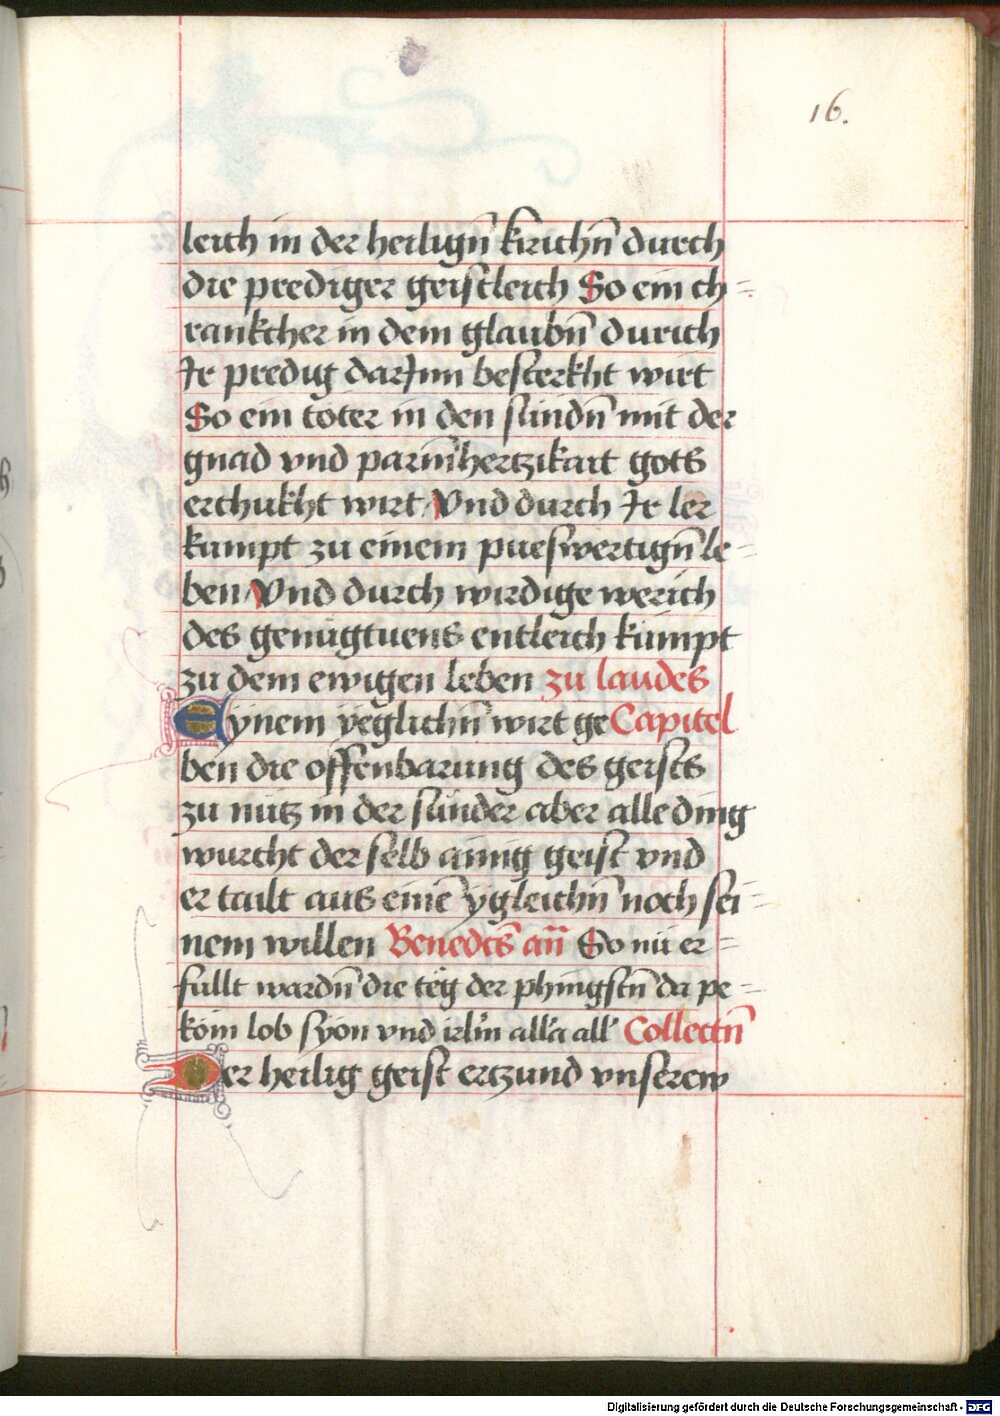 16.
leich in der heiligñ kirichñ durch
die prediger geistleich So ein ch=
rankcher in dem glaubñ durich
Ir predig darInn besterkht wirt
So ein töter in den sündñ mit der
gnad vnd parm̃hertzikait gots
erchukht wirt Vnd durch Ir ler
kumpt zu einem pueswertigñ le=
ben Vnd durch wirdige werich
des genügtuens entleich kumpt
zu dem ewigen leben zu laudes
Eynem yeglichñ wirt ge Capitel
ben die offenbarung des geists
zu nutz in der sünder aber alle ding
wurcht der selb ainig geist vnd
er tailt aus einē ygleichñ noch sei=
nem willen Benedcs̄ añ So nu er=
füllt wardñ die täg der phingstñ da pe=
köm lob syon vnd irlm̄ all'a all' Collectñ
Der heilig geist ertzund vnserew
Digitalisierung gefördert durch die Deutsche Forschungsgemeinschaft - DFG